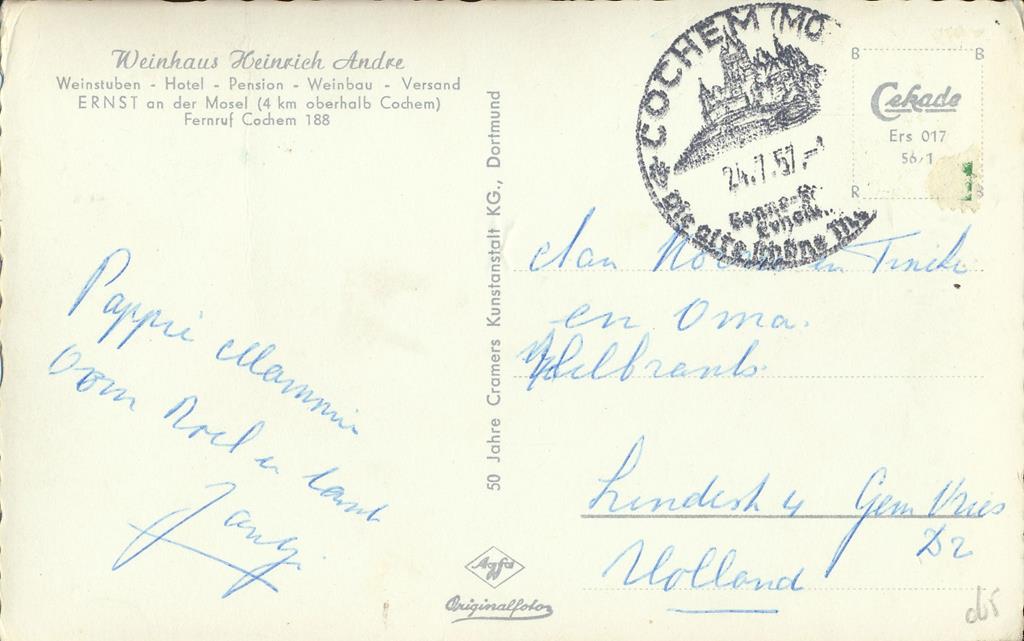 Weinhaus Heinrich Andre
Weinstuben - Hotel - Pension - Weinbau - Versand
ERNST an der Mosel (4 km oberhalb Cochem)
Fernruf Cochem 188
Pappie Mammie
oom Roel en tante
Jantj.
50 Jahre Cramers Kunstanstalt KG., Dortmund
Agfa
Originalfoto
COCHEM (MO
24.7.57.-
die alte schöne
B B
Cekade
Ers 017
56/1
R B
Aan en Tineke
en Oma.
Helbrants
Lindestr 4 Gem Vries
Dr
Holland